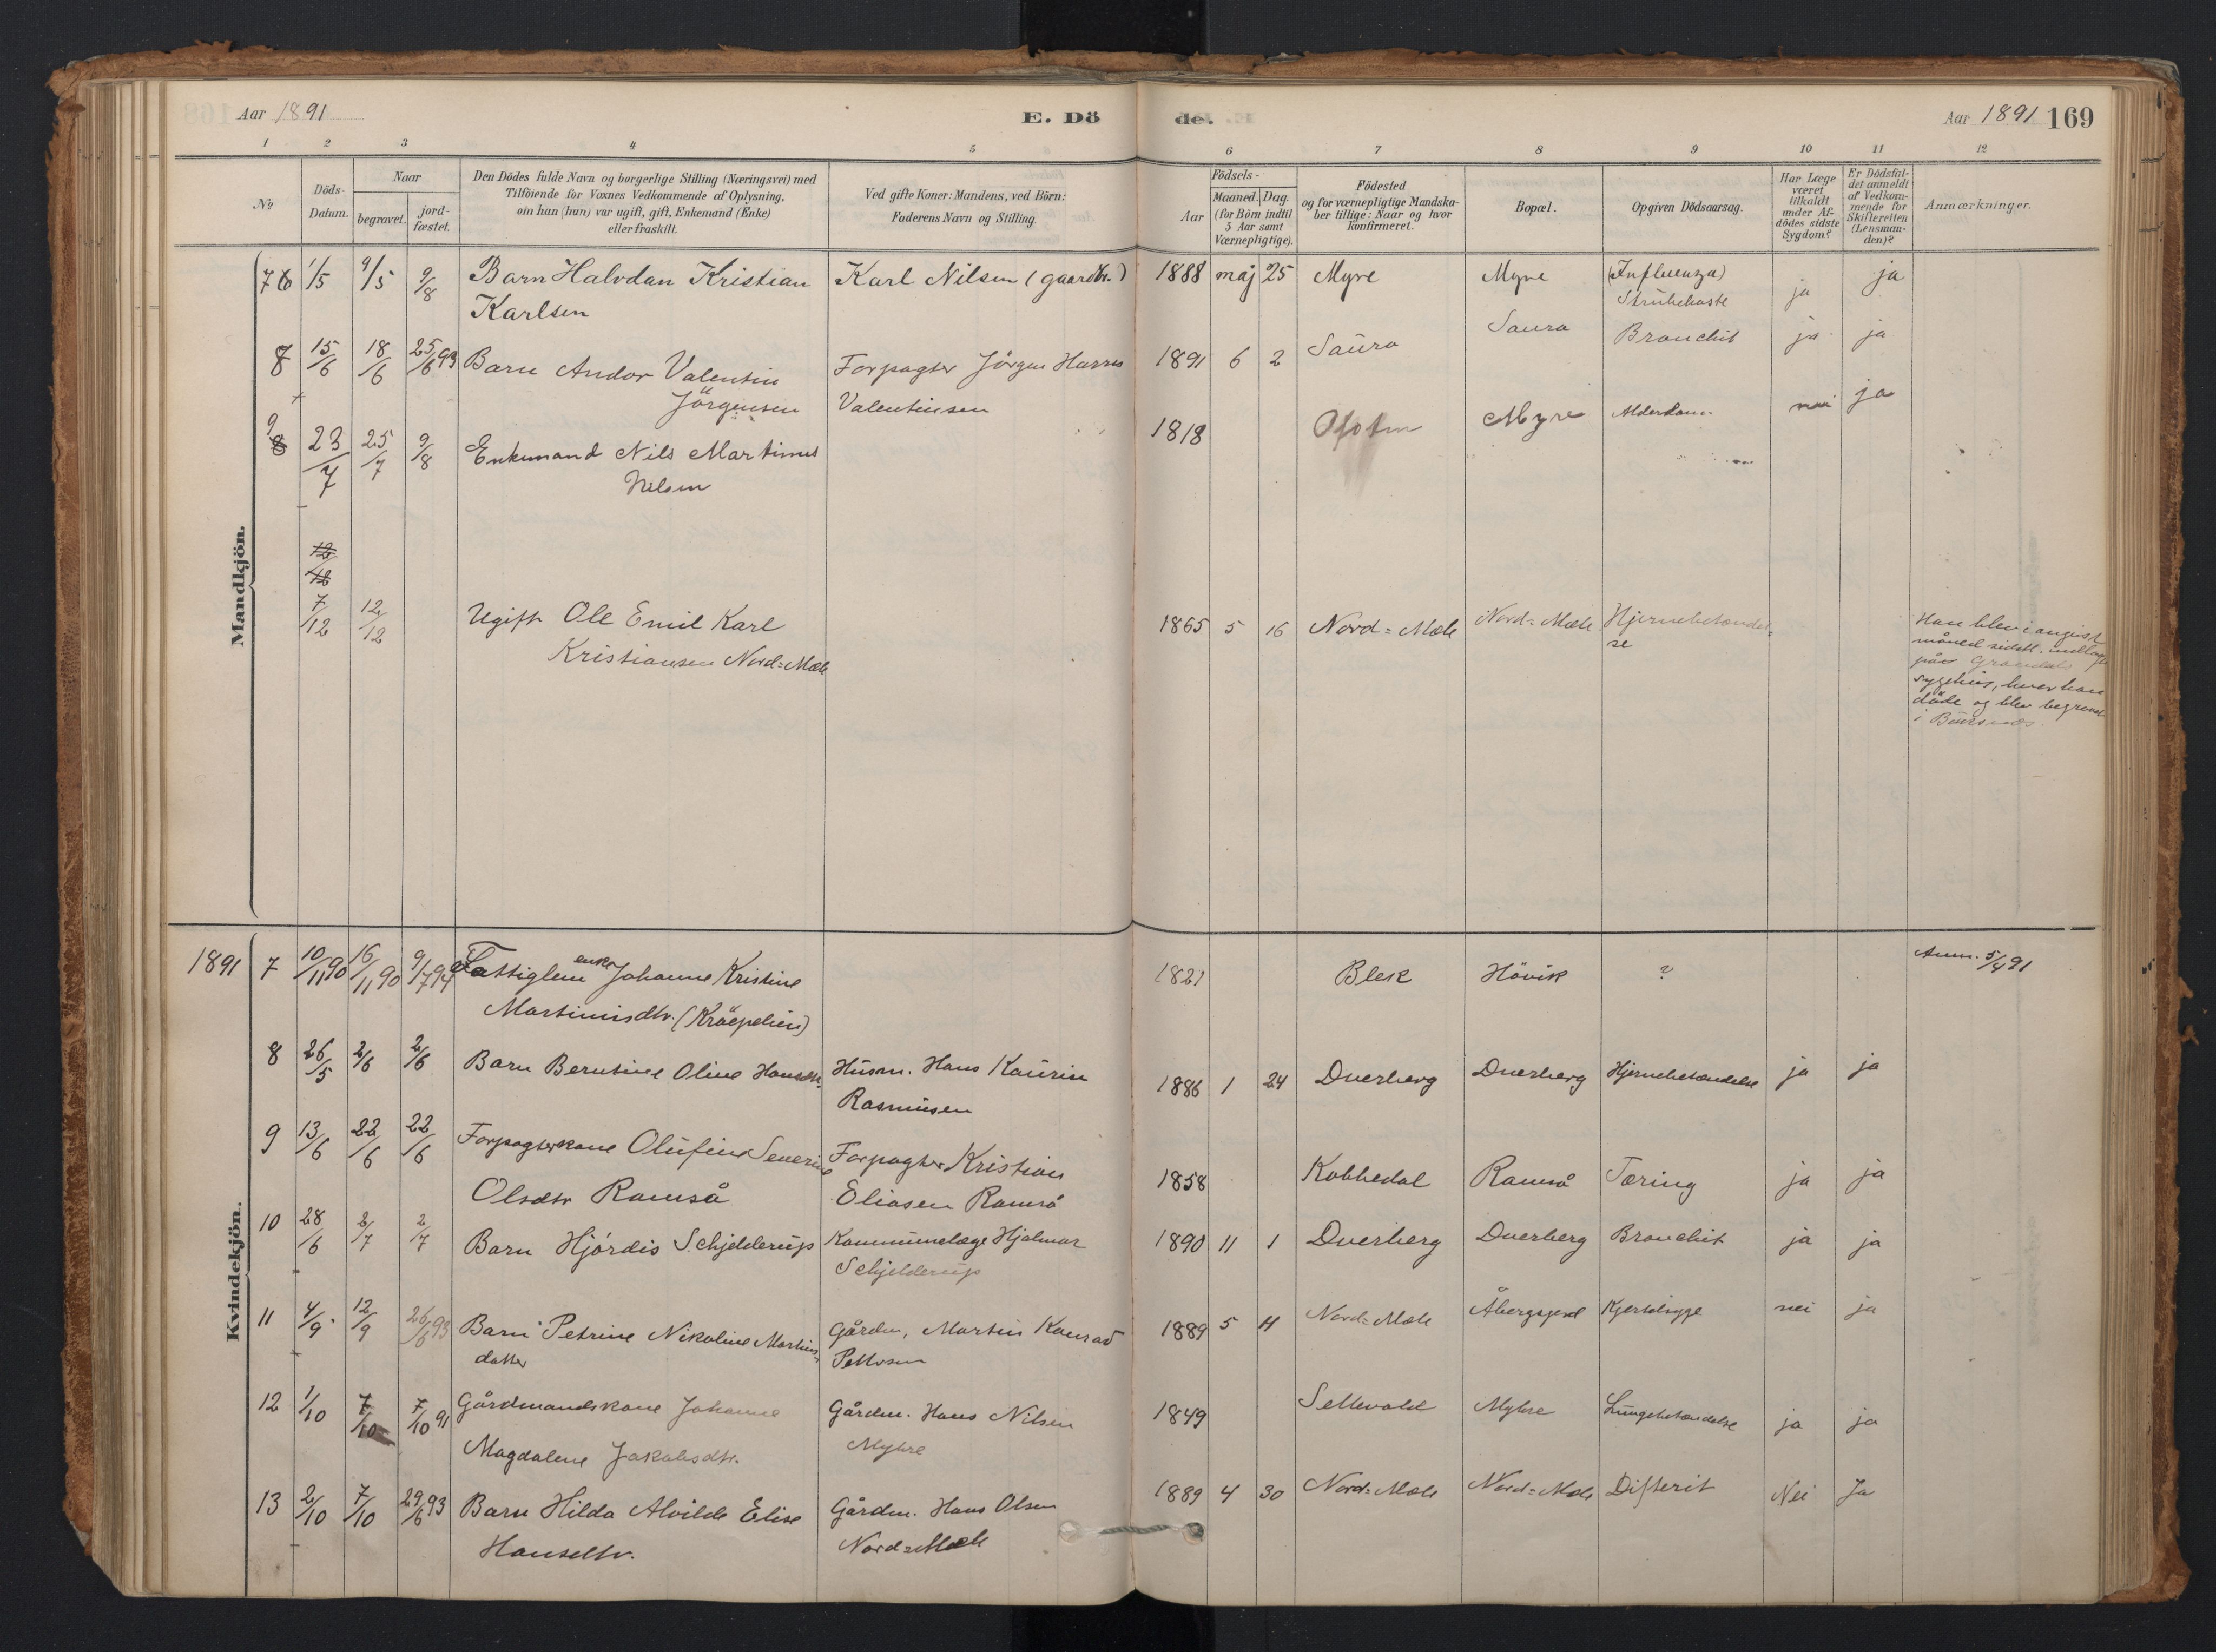 Aar 1891 E. Dö de. Aar 1891 169
1 2 3 4 5 6 7 8 9 10 11 12
No
Döds-Datum.
Naar
begravet.
jord-fæstet.
Den Dödes fulde Navn og borgerlige Stilling (Næringsvei) med
Tilföiende for Voxnes Vedkommende af Oplysning,
om han (hun) var ugift, gift, Enkemand (Enke)
eller fraskilt.
Ved gifte Koner: Mandens, ved Börn:
Faderens Navn og Stilling.
Födsels-
Aar
Maaned. Dag.
(for Börn indtil
5 Aar samt
Værnepligtige).
Födested
og for værnepligtige Mandska-
ber tillige: Naar og hvor
konfirmeret.
Bopæl.
Opgiven Dödsaarsag.
Har Læge
været
tilkaldt
under Af-
dödes sidste
Sygdom?
Er Dödsfal-
det anmeldt
af Vedkom-
mende for
Skifteretten
(Lensman-
den)?
Anmærkninger.
Mandkjön.
7 1/5 9/5 9/8 Barn Halvdan Kristian Karl Nilsen (gaardbr.) 1888 maj 25 Myre Myre (Influenza) ja ja
Karlsen Strubehoste
8 15/6 18/6 25/6 93 Barn Andor Valentin Forpagter Jörgen Hansen 1891 6 2 Saura Saura Bronchit ja ja
Jörgensen Valentinsen
9 23/7 25/7 9/8 Enkemand Nils Martinus 1818 Ofoten Myre Alderdom nei ja
Nilsen
7/12 12/12 Ugift Ole Emil Karl 1865 5 16 Nord=Mæle Nord=Mæle Hjernebetændel=
Kristiansen Nord=Mæle se
Han blev i august
måned sidstl. indlagt
på Gravdal
sygehus, hvor han
döde og blev begravet
i Buksnes.
Kvindekjön.
1891 7 10/11 90 16/11 90 9/7 94 Fattiglem enke Johanne Kristine 1821 Blek Hövik ? Anm. 5/4 91
Martinusdtr. (Kräepelien)
8 26/5 2/6 2/6 Barn Berntine Oline Hansdtr. Husm. Hans Kaurin 1886 1 24 Dverberg Dverberg Hjernebetændelse ja ja
Rasmusen
9 13/6 22/6 22/6 Forpagterkone Olufine Severine Forpagter Kristian 1858 Kobbedal Ramså Tæring ja ja
Olsdtr Ramså Eliasen Ramså
10 28/6 2/7 2/7 Barn Hjördis Schjelderup Kommunelæge Hjalmar 1890 11 1 Dverberg Dverberg Bronchit ja ja
Schjelderup
11 4/9 12/9 26/6 93 Barn Petrine Nikoline Martins= Gårdm, Martin Konrad 1889 5 11 Nord=Mæle Åbergsjord Kjertelsyge nei ja
datter Pettersen
12 1/10 7/10 7/10 91 Gårdmandskone Johanne Gårdm. Hans Nilsen 1849 Sellevold Myhre Lungebetændelse ja ja
Magdalene Jakobsdtr. Myhre
13 2/10 7/10 29/6 93 Barn Hilda Alvilde Elise Gårdm. Hans Olsen 1889 4 30 Nord=Mæle Nord=Mæle Difterit Nei Ja
Hansdtr. Nord=Mæle